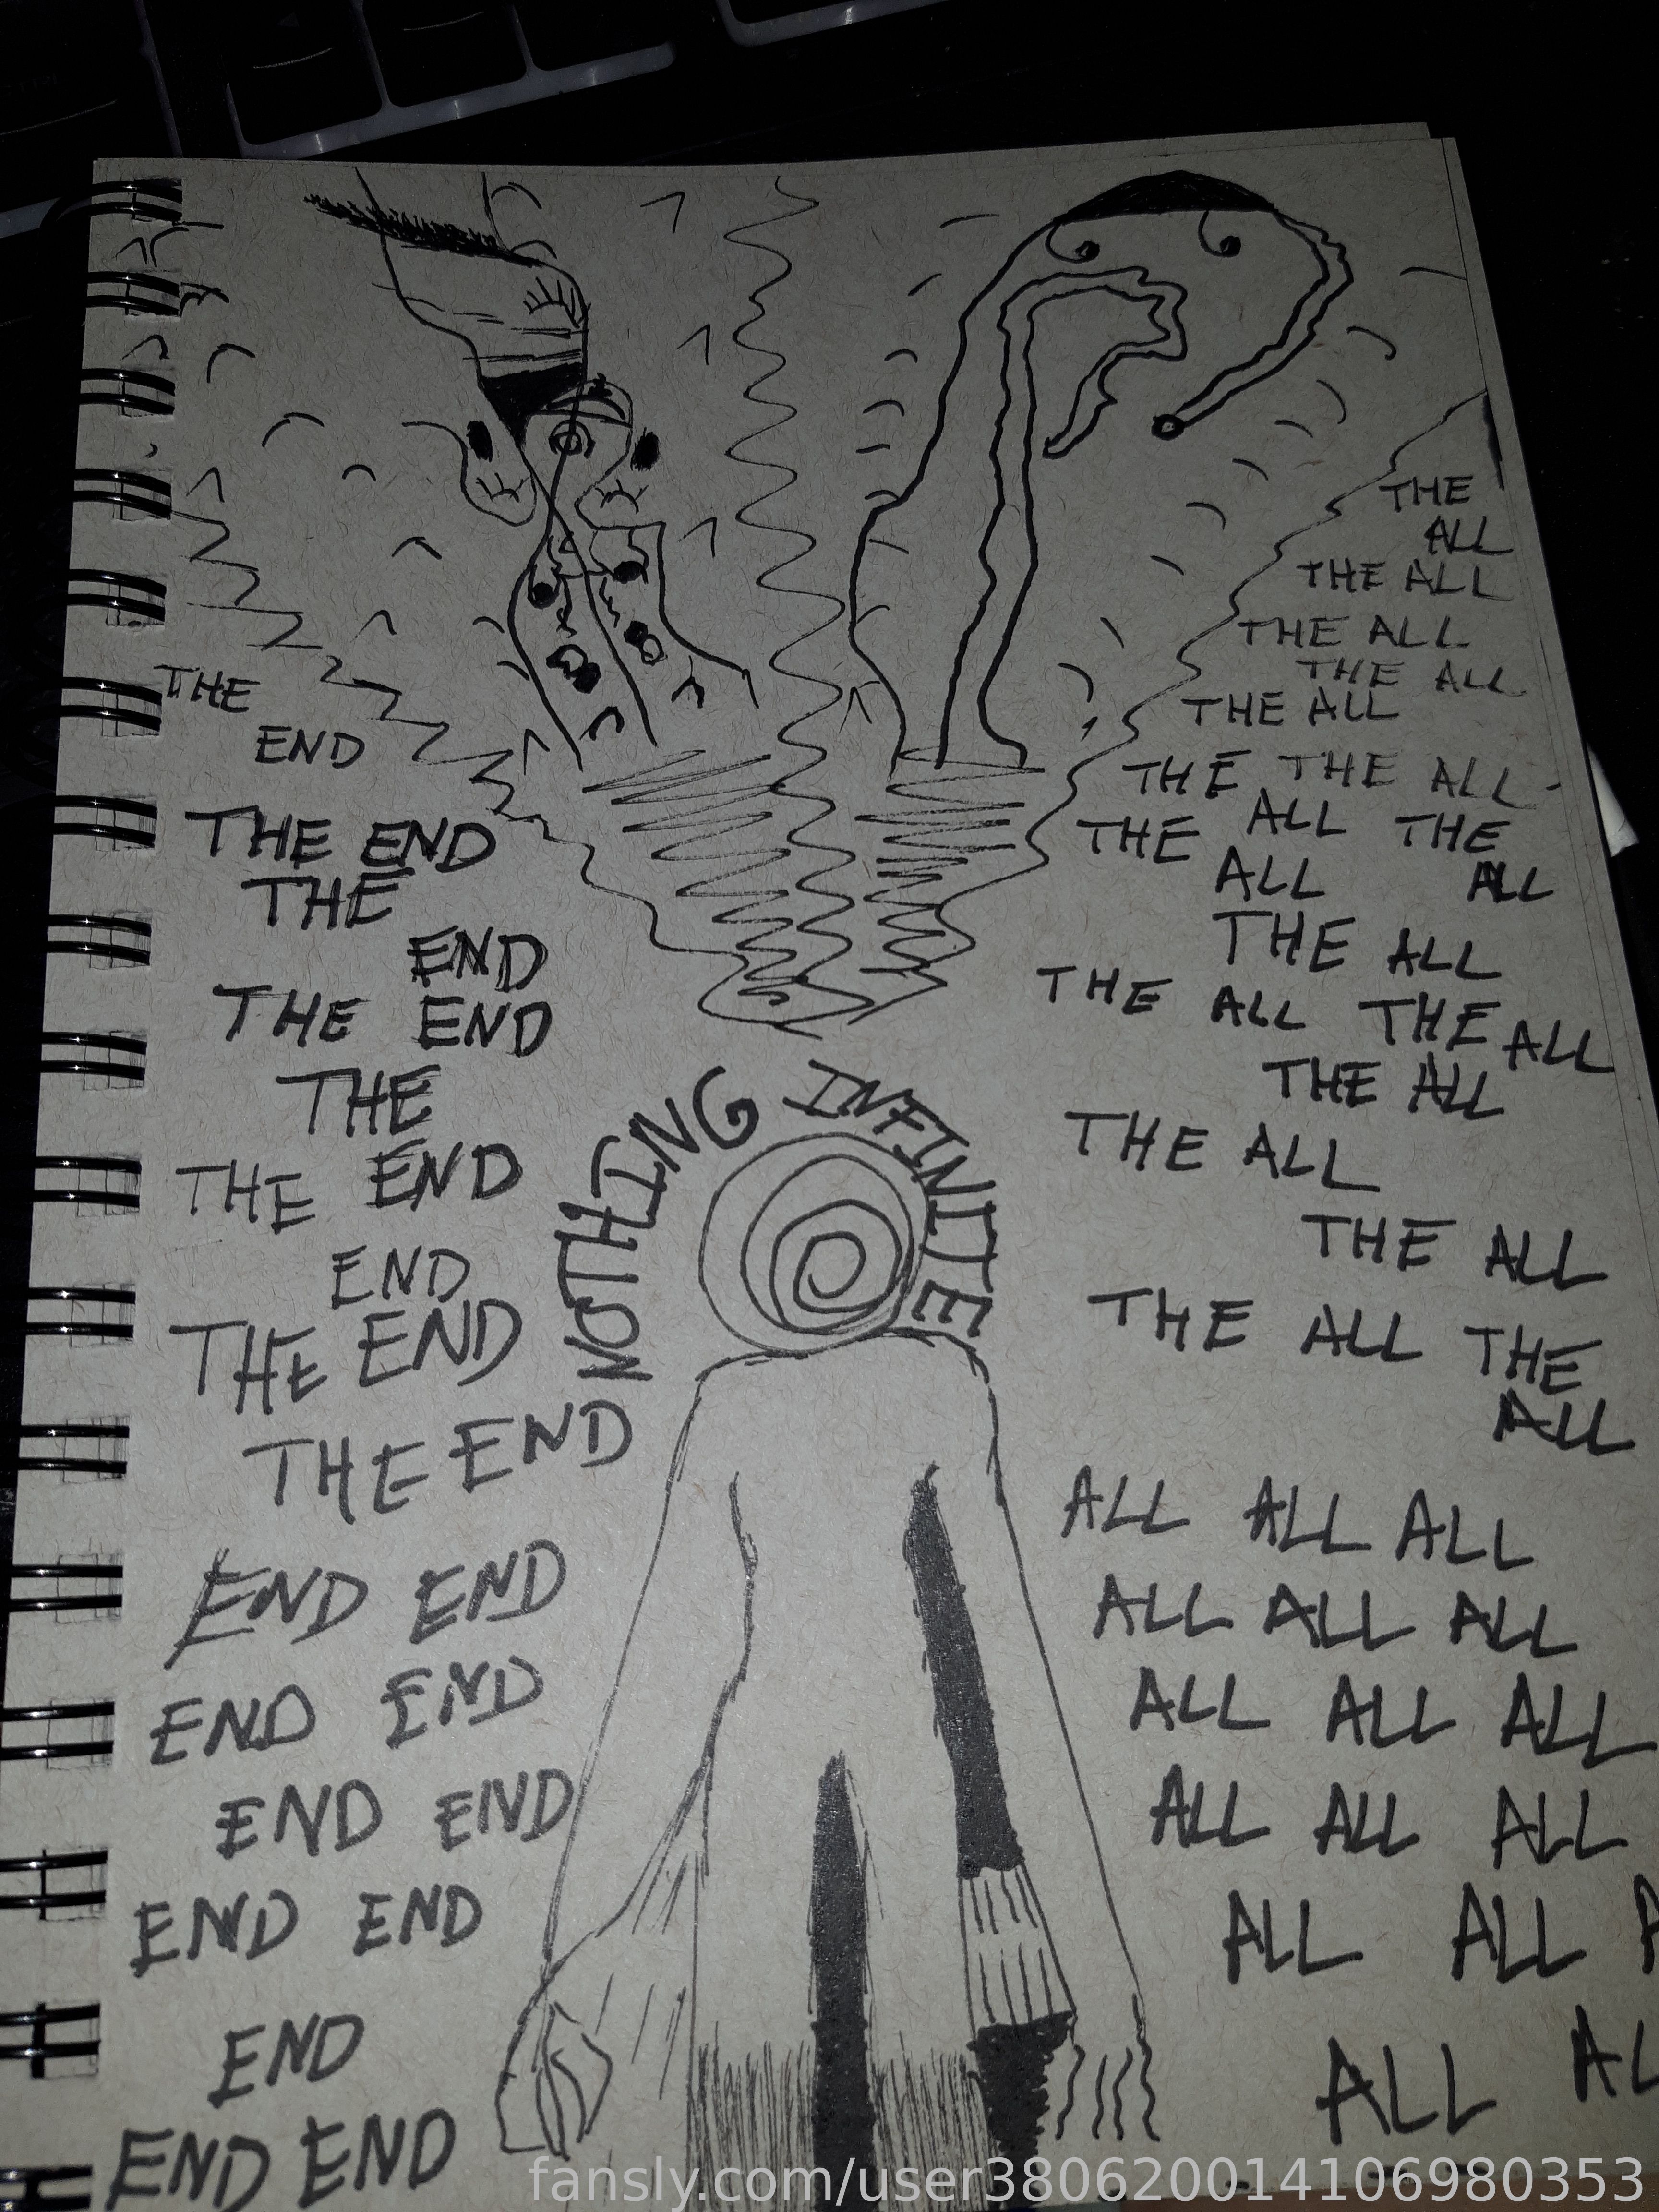 THE
END
THE END
THE
END
THE END
THE
THE END
END
THE END
THE END
END END
END END
END END
END END
END
END END
NOTHING INFINITE
THE
ALL
THE ALL
THE ALL
THE ALL
THE ALL
THE THE ALL
THE ALL THE
ALL ALL
THE ALL
THE ALL THE ALL
THE ALL
THE ALL
THE ALL
THE ALL THE
ALL
ALL ALL ALL
ALL ALL ALL
ALL ALL ALL
ALL ALL ALL
ALL ALL
ALL
fansly.com/user380620014106980353